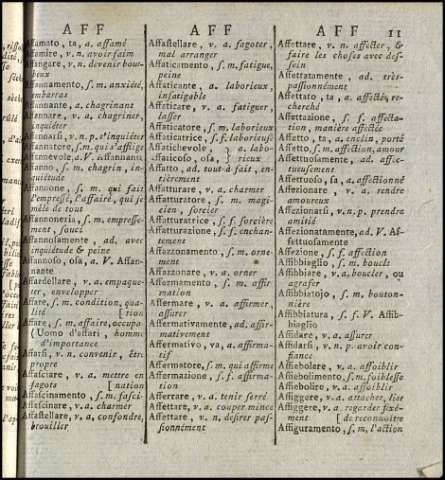 AFF
Affamato, ta, a. affamé
Affamire, v. n. avoir faim
Affangare, v. n. devenir bou-
beux
Affannamento, s. m. anxiété,
embarras
Affannante, a. chagrinant
Affannare, v. a. chagriner,
inquiéter
Affannarsi, v. n. p. s'inquiéter
Affannatore, s. m. qui s'afflige
Affannevole, a. V. Affannante
Affanno, s. m. chagrin, in-
quiétude
Affannone, s. m. qui fait
l'empressé, l'affairé, qui se
mêle de tout
Affannoneria, s. m. empresse-
ment, souci
Affannosamente, ad. avec
inquiétude & peine
Affannoso, osa, a. V. Affan-
nante
Affardellare, v. a. empaque-
ter, envelopper
Affare, s. m. condition, qua-
lité
Affare, s. m. affaire, occupa-
(Uomo d'affari, homme
d'importance
Affarsi, v. n. convenir, être
propre
Affasciare, v. a. mettre en
fagots [nation
Affascinamento, s. m. fasci-
Affascinare, v. a. charmer
Affastellare, v. a. confondre,
brouiller
AFF
Affastellare, v. a. fagoter,
mal arranger
Affaticamento, s. m. fatigue,
peine
Affaticante, a. laborieux,
infatigable
Affaticare, v. a. fatiguer,
lasser
Affaticatore, s. m. laborieux
Affaticatrice, s. f. laborieuse
Affatichevole, } a. labo-
Affaticoso, osa, } rieux
Affatto, ad. tout-à-fait, en-
tièrement
Affatturare, v. a. charmer
Affatturatore, s. m. magi-
cien, sorcier
Affatturatrice, s. f. sorcière
Affatturazione, s. f. enchan-
tement
Affazzonamento, s. m. orne-
ment
Affazzonare, v. a. orner
Affermamento, s. m. affir-
mation
Affermare, v. a. affirmer,
assurer
Affermativamente, ad. affir-
mativement
Affermativo, va, a. affirma-
tif
Affermatore, s. m. qui affirme
Affermazione, s. f. affirma-
tion
Afferrare, v. a. tenir serré
Affettare, v. a. couper mince
Affettare, v. n. désirer pas-
sionnément
AFF 11
Affettare, v. n. affecter, &
faire les choses avec des-
sein
Affettatamente, ad. très-
passionnément
Affettato, ta, a. affecté, re-
cherché
Affettazione, s. f. affecta-
tion, manière affectée
Affetto, ta, a. enclin, porté
Affetto, s. m. affection, amour
Affettuosamente, ad. affec-
tueusement
Affettuoso, sa, a. affectionné
Affezionare, v. a. rendre
amoureux
Affezionarsi, v. n. p. prendre
amitié
Affezionatamente, ad. V. Af-
fettuosamente
Affezione, s. f. affection
Affibbiaglio, s. m. boucle
Affibbiare, v. a. boucler, ou
agrafer
Affibbiatojo, s. m. bouton-
nière
Affibbiatura, s. f. V. Affib-
biaglio
Affidare, v. a. assurer
Affidarsi, v. n. p. avoir con-
fiance
Affiebolare, v. a. affoiblir
Affiebolimento, s. m. foiblesse
Affiebolire, v. a. affoiblir
Affiggere, v. a. attacher, lier
Affiggere, v. a. regarder fixé-
ment [de reconnoître
Affiguramento, s. m. l'action